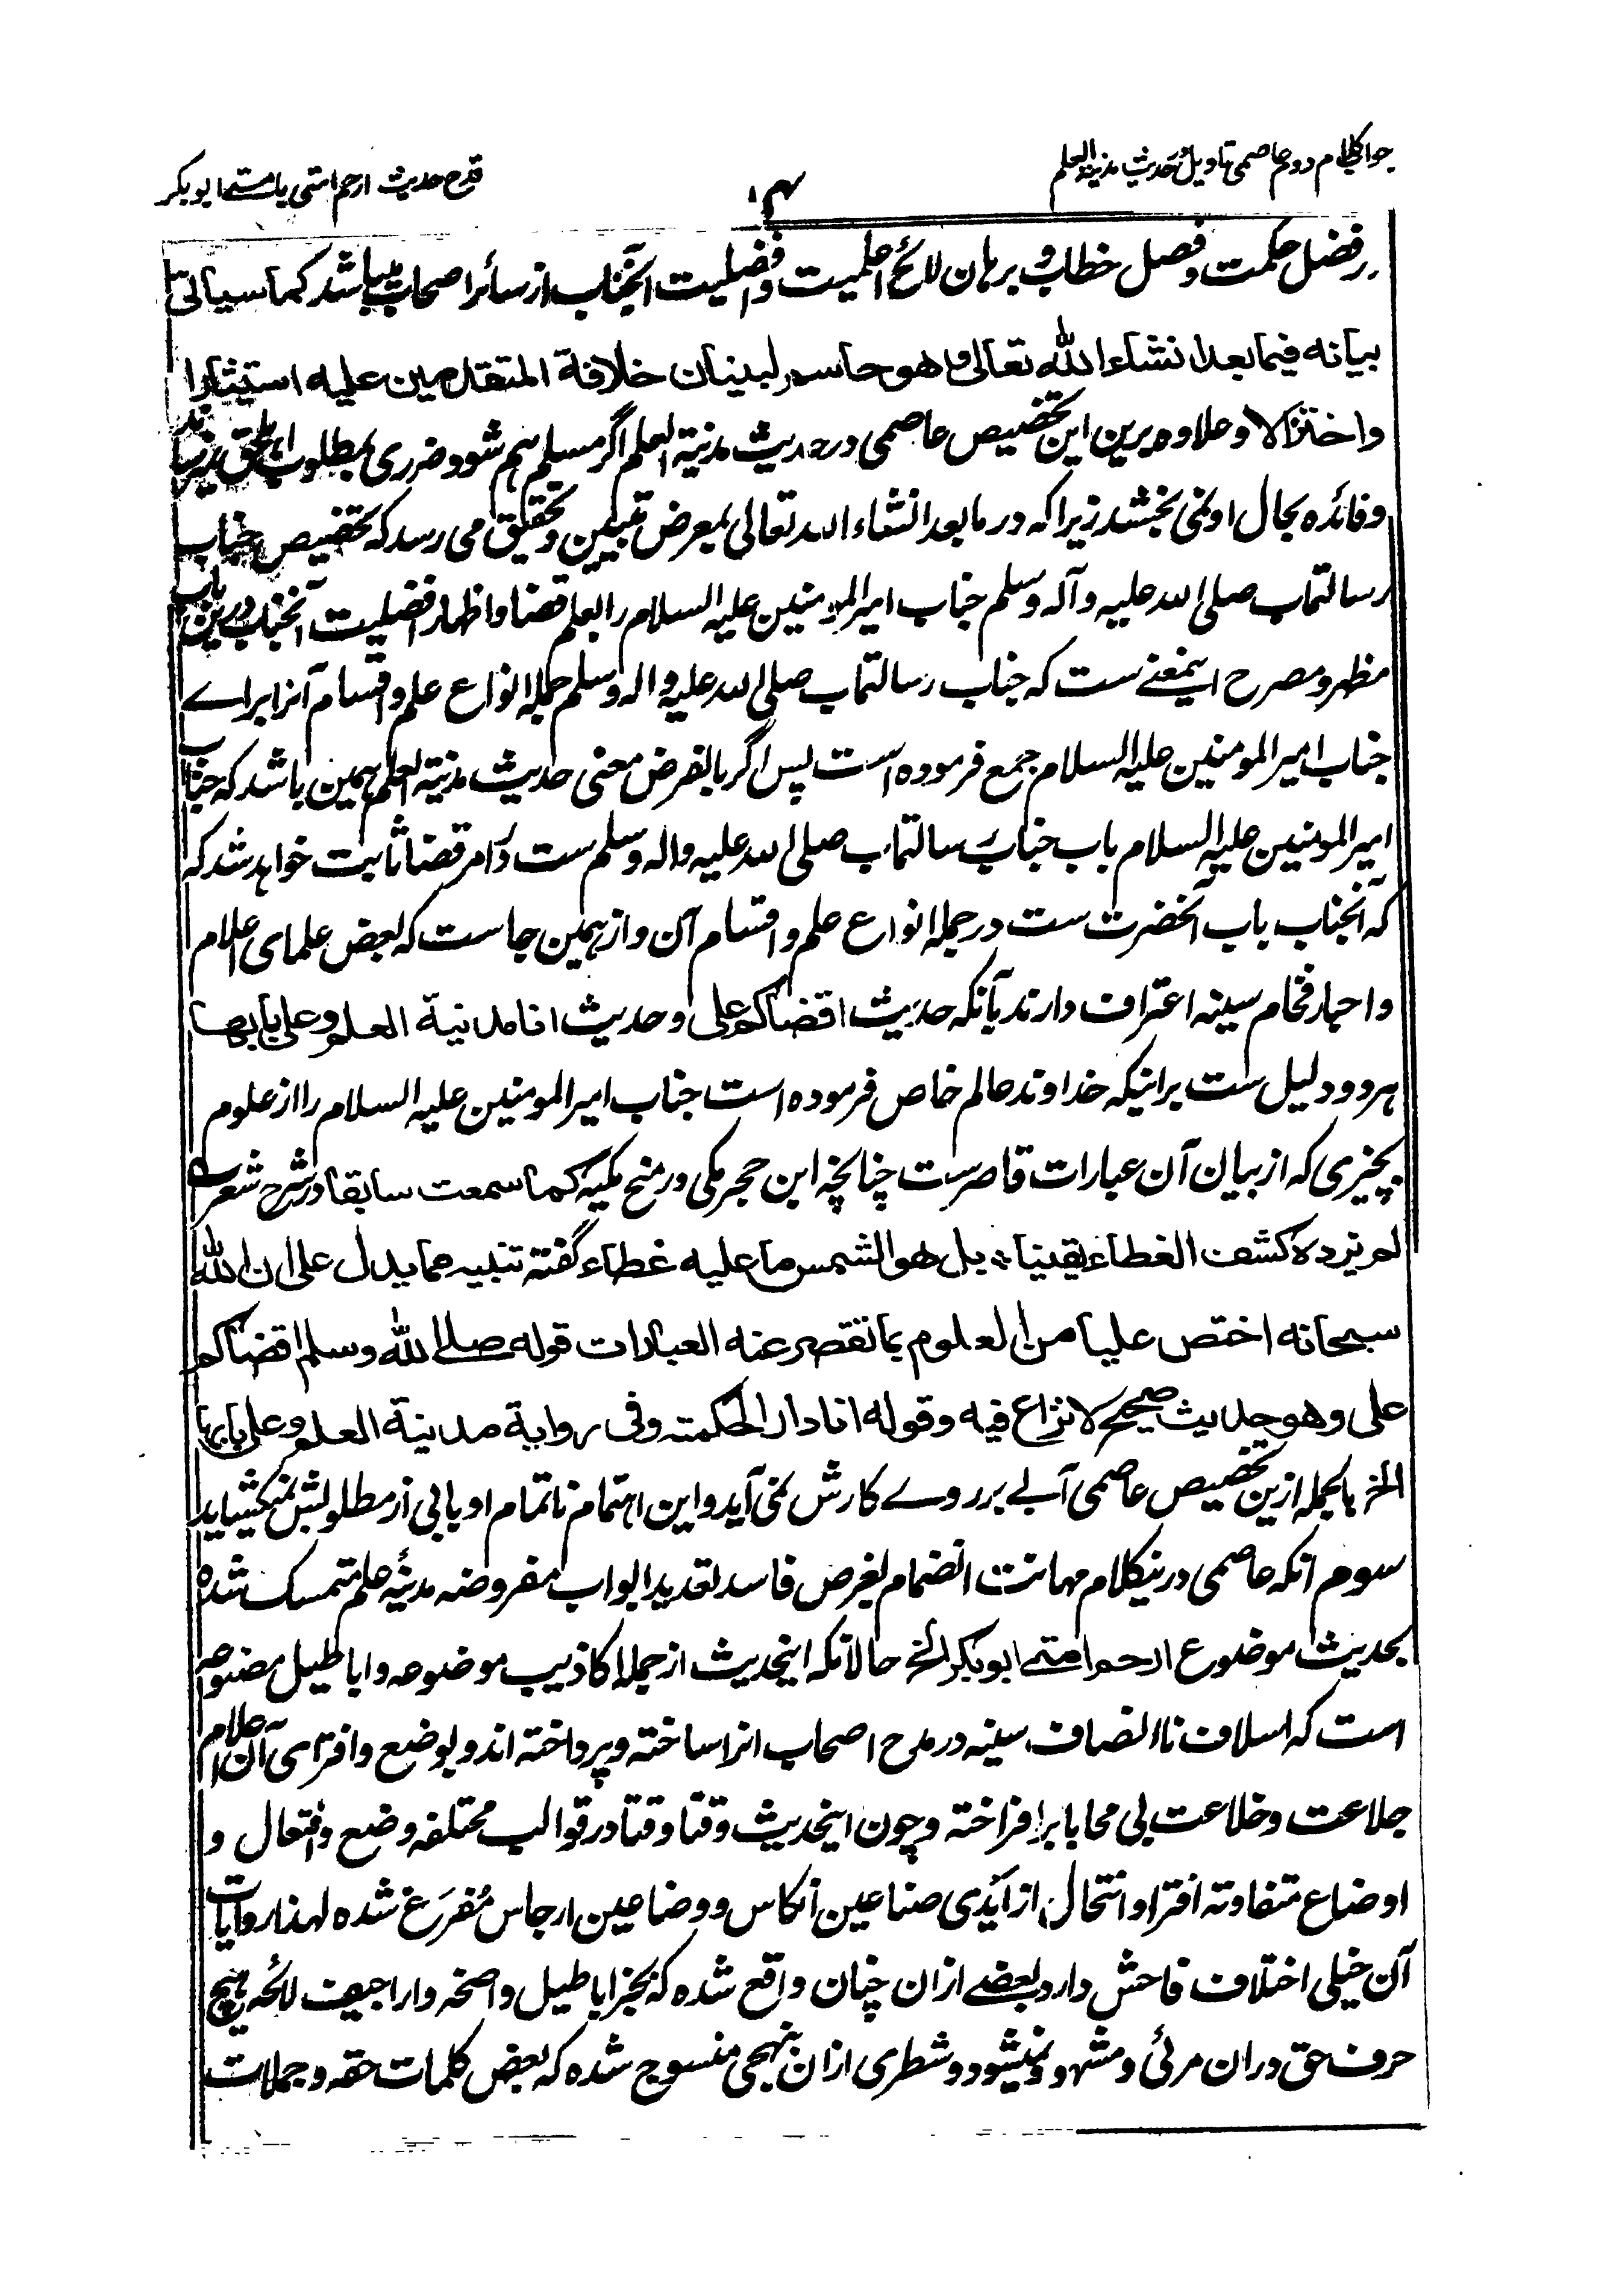 جواب کلام دوم عاصمی تاویل حدیث مدینة العلم
قدح حدیث ارحم امتی بامتی ابوبکر
بر فضل حکمت و فصل خطاب و برهان لائح اعلمیت و افضلیت آنجناب از سائر اصحاب میباشد کما سیأتی
بیانه فیما بعد انشاء الله تعالی و هو حاسم لبنیان خلافة المتقدمین علیه استیثارا
و اختزالا و علاوه برین این تخصیص عاصمی در حدیث مدینة العلم اگر مسلم هم شود ضرری بمطلوب اهل حق نمیرساند
و فائده بحال او نمی بخشد زیرا که در ما بعد انشاء الله تعالی بمعرض تبیین و تحقیق می رسد که تخصیص جناب
رسالتمآب صلی الله علیه و آله و سلم جناب امیر المومنین علیه السلام را بعلم قضا و اظهار افضلیت آنجناب درین باب
مظهر و مصرح اینمعنے ست که جناب رسالتمآب صلی الله علیه و اله و سلم جمله انواع علم و اقسام آنرا براے
جناب امیر المومنین علیه السلام جمع فرموده است پس اگر بالفرض معنی حدیث مدینة العلم همین باشد که جناب
امیر المومنین علیه السلام باب جناب رسالتمآب صلی الله علیه و اله و سلم ست در امر قضا ثابت خواهد شد که
که آنجناب باب آنحضرت ست در جمله انواع علم و اقسام آن و از همین جاست که بعض علمای اعلام
و احبار فخام سنیه اعتراف دارند بآنکه حدیث اقضاکم علی و حدیث انا مدینة العلم و علی بابها
هر دو دلیل ست برانیکه خداوند عالم خاص فرموده است جناب امیر المومنین علیه السلام را از علوم
بچیزی که از بیان آن عبارات قاصرست چنانچه ابن حجر مکی در منح مکیه کما سمعت سابقا در شرح شعر
لم یزده کشف الغطاء یقینا ؞ بل هو الشمس ما علیه غطاء گفته تنبیه مما یدل علی ان الله
سبحانه اختص علیا من العلوم بما تقصر عنه العبارات قوله صلی الله و سلم اقضاکم
علی و هو حدیث صحیح لا نزاع فیه و قوله انا دار الحکمة و فی روایة مدینة العلم و علی بابها
الخ بالجمله ازین تخصیص عاصمی آبے بر روے کارش نمی آید و این اهتمام ناتمام او بابی از مطلوبش نمیکشاید
سوم آنکه عاصمی درینکلام مهانت انضمام بغرض فاسد تعدید ابواب مفروضه مدینهٔ علم متمسک شده
بحدیث موضوع ارحم امتے ابوبکر الخ حالانکه اینحدیث از جمله اکاذیب موضوعه و اباطیل مصنوعه
است که اسلاف ناانصاف سنیه در مدح اصحاب انرا ساخته و پرداخته اند و بوضع و افترای آن اعلام
جلاعت و خلاعت بی محابا برافراخته و چون اینحدیث وقتا وقتا در قوالب مختلفه وضع و افتعال و
اوضاع متفاوته افترا و انتحال از ایدی صناعین انکاس و وضاعین ارجاس مُفرَغ شده لهذا روایات
آن خیلی اختلاف فاحش دارد بعضے ازان چنان واقع شده که بجز اباطیل واضحه و اراجیف لائحه هیچ
حرف حق دران مرئی و مشهود نمیشود و شطری ازان بنهجی منسوج شده که بعض کلمات حقه و جملات